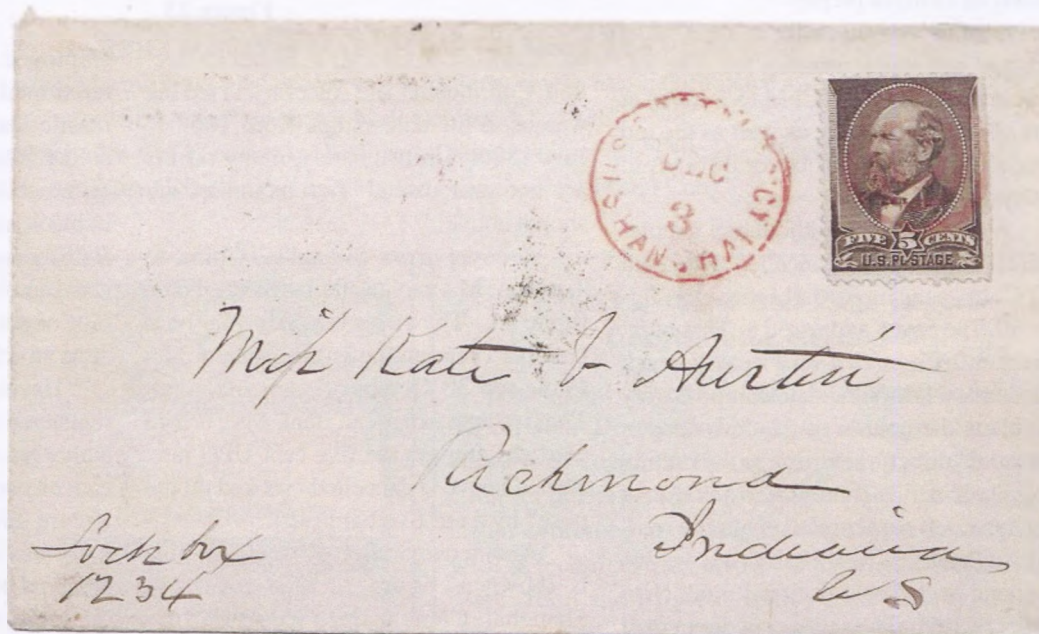 U.S. POSTAL AGENCY
DEC
3
SHANGHAI
FIVE 5 CENTS
U.S. POSTAGE
Miss Kate V Austin
Richmond
Indiana
US
Lock box
1234